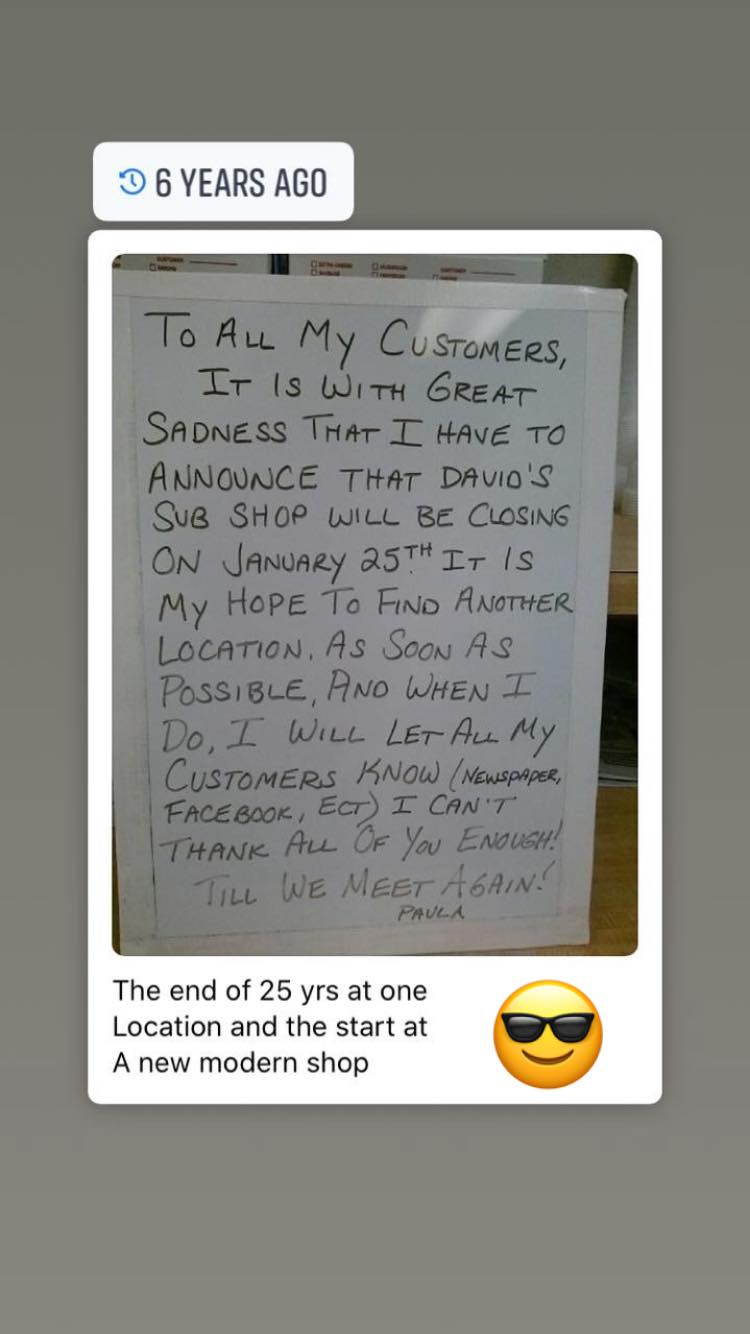 6 YEARS AGO
TO ALL MY CUSTOMERS,
IT IS WITH GREAT
SADNESS THAT I HAVE TO
ANNOUNCE THAT DAVID'S
SUB SHOP WILL BE CLOSING
ON JANUARY 25TH IT IS
MY HOPE TO FIND ANOTHER
LOCATION, AS SOON AS
POSSIBLE, AND WHEN I
DO, I WILL LET ALL MY
CUSTOMERS KNOW (NEWSPAPER,
FACEBOOK, ECT) I CAN'T
THANK ALL OF YOU ENOUGH!
TILL WE MEET AGAIN!
PAULA
The end of 25 yrs at one
Location and the start at
A new modern shop